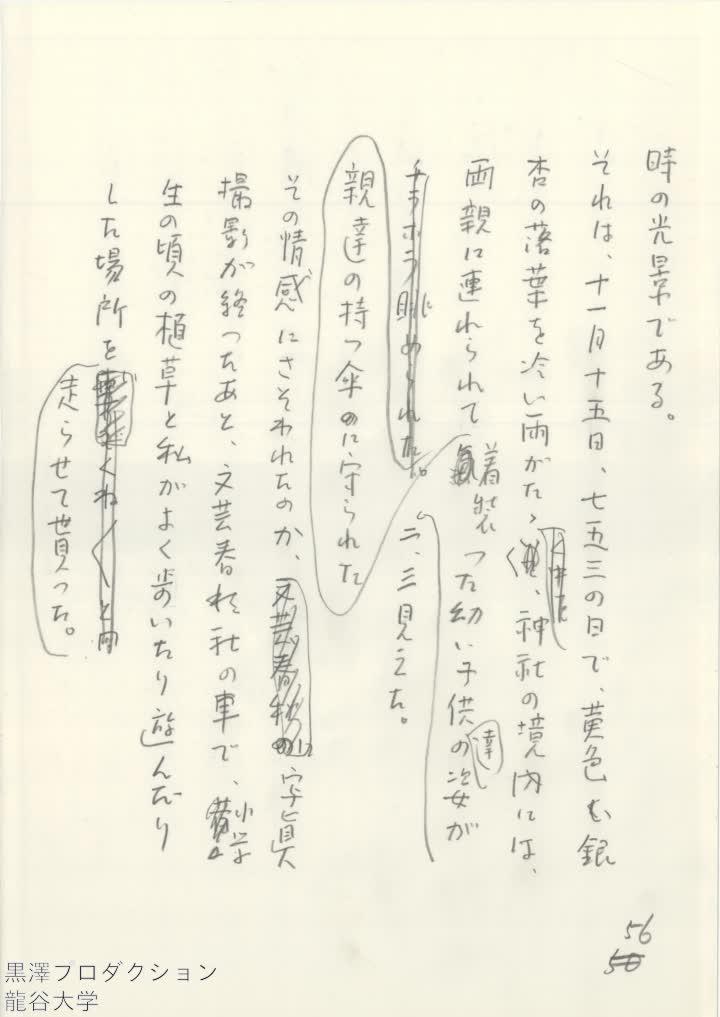 時の光景である。
それは、十一月十五日、七五三の日で、黄色い銀
杏の落葉を冷い雨がたゝく、神社の境内には、
両親に連れられて着装った幼い子供達の姿が
チラホラ眺められた。二、三見えた。
親達の持つ傘のに守られた
その情感にさそわれたのか、文芸春秋の写真
撮影が終ったあと、文芸春秋社の車で、小学
生の頃の植草と私がよく歩いたり遊んだり
した場所を
走らせて貰った。
56
50
黒澤プロダクション
龍谷大学